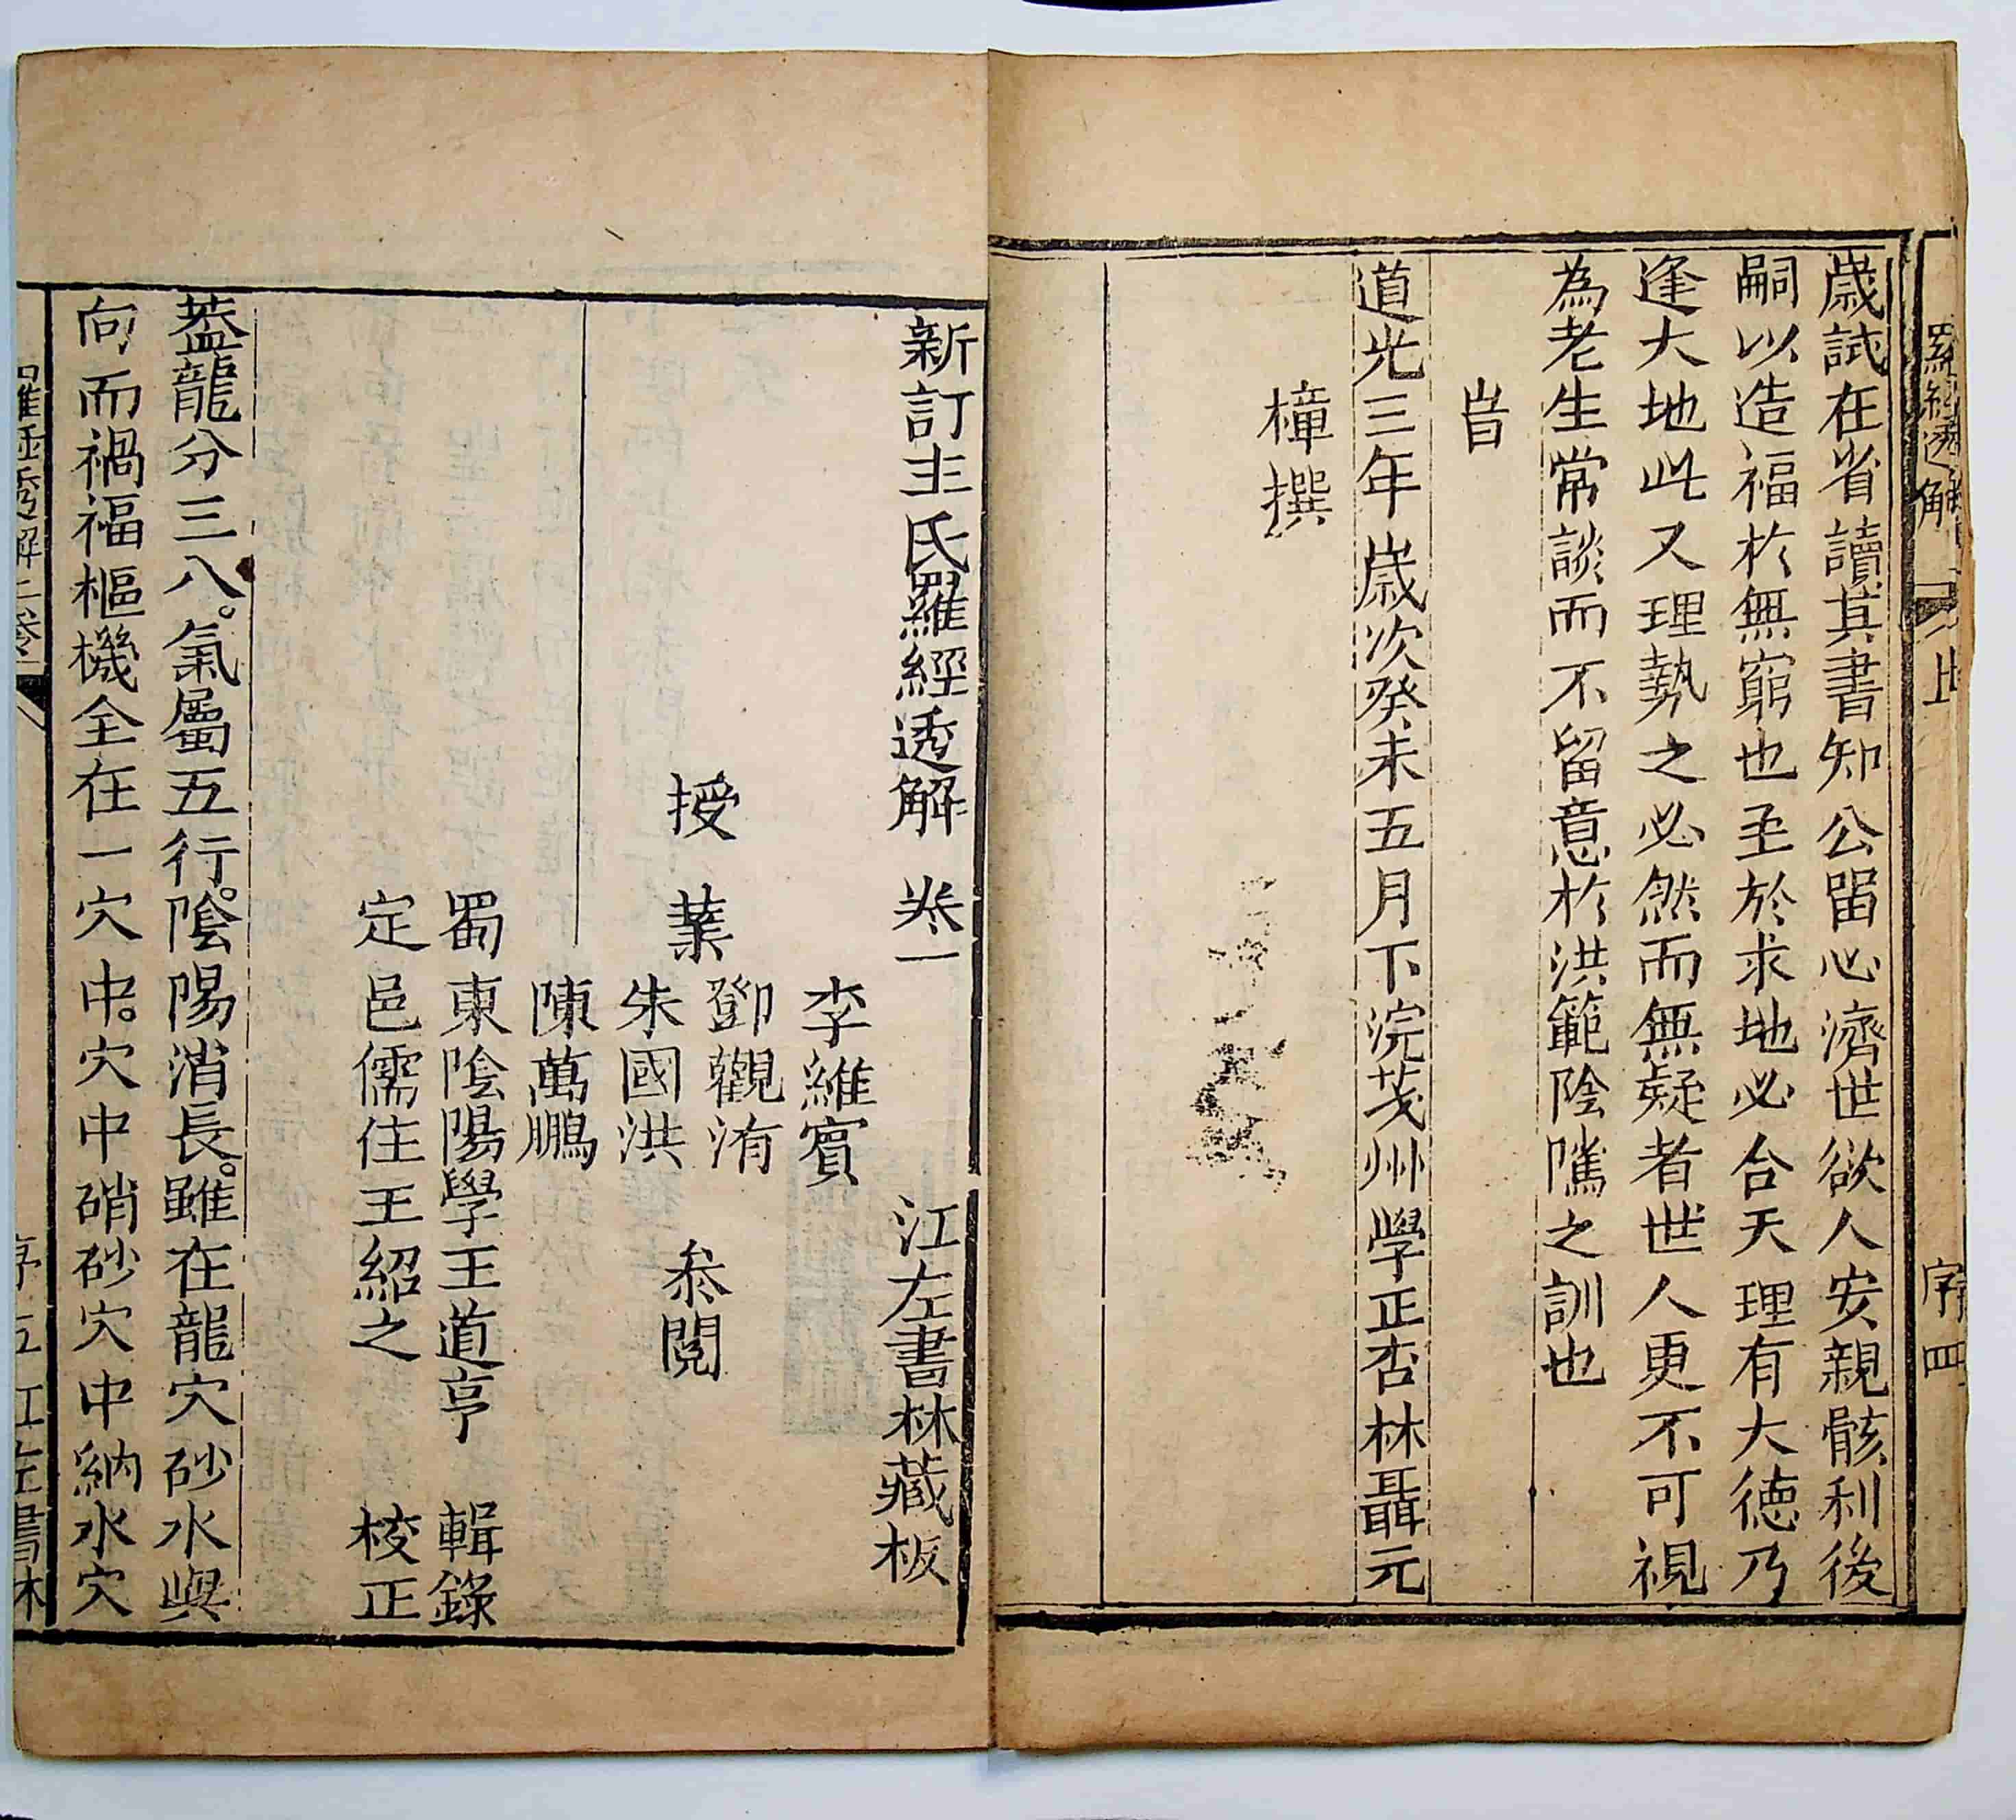 羅經透解 上 序四
歲試在省讀其書知公留心濟世欲人安親骸利後
嗣以造福於無窮也至於求地必合天理有大德乃
逢大地此又理勢之必然而無疑者世人更不可視
為老生常談而不留意於洪範陰隲之訓也
旹
道光三年歲次癸未五月下浣茂州學正杏林聶元
樟撰
新訂王氏羅經透解 卷一 江左書林藏板
李維賓
授業 鄧觀洧 參閱
朱國洪
陳萬鵬
蜀東陰陽學王道亨 輯錄
定邑儒住王紹之 校正
葢龍分三八。氣屬五行。陰陽消長。雖在龍穴砂水與
向而禍福樞機全在一穴中。穴中硝砂穴中納水穴
羅經透解上卷 序五 江左書林